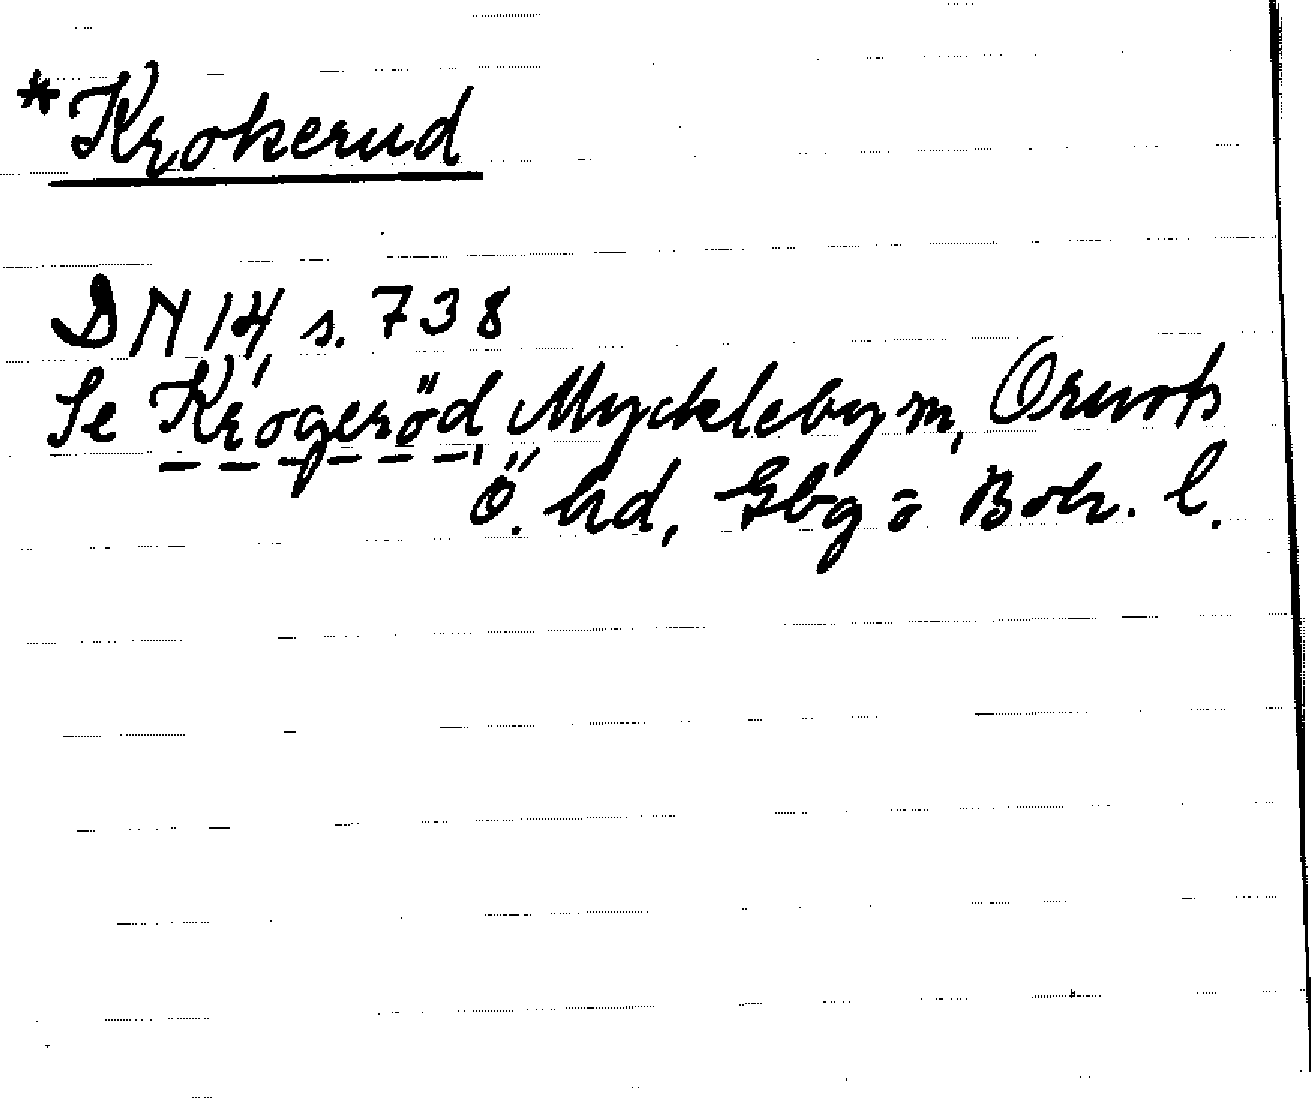 *Krokerud
DN 14, s. 738
Se Krogeröd, Myckleby sn, Orusts
Ö. hd, Gbg o Boh. l.